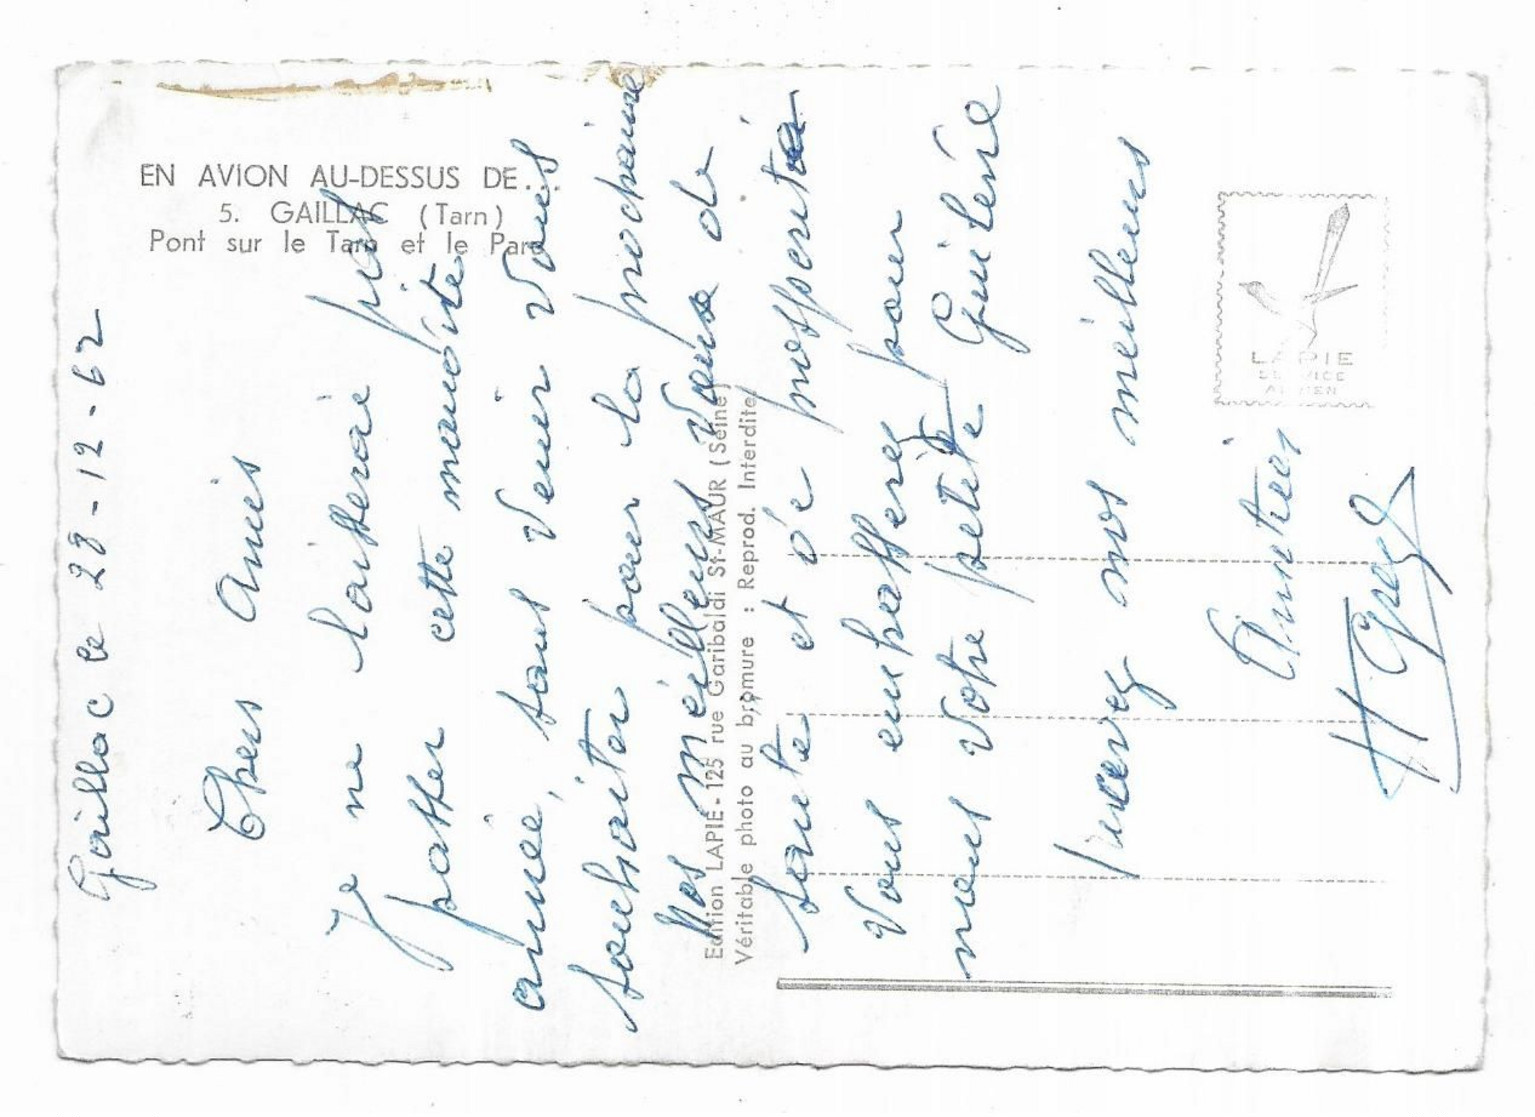 EN AVION AU-DESSUS DE...
5. GAILLAC (Tarn)
Pont sur le Tarn et le Parc
Gaillac le 28-12-62
Chers Amis
Je ne laisserai pas
passer cette maudite
année, sans venir vous
souhaiter pour la prochaine
Nos meilleurs vœux de
santé et de prospérité
Vous embrasserez pour
nous votre petite Guilène
Recevez nos meilleurs
Amitiés
Edition LAPIE - 125 rue Garibaldi St-MAUR (Seine)
Véritable photo au bromure : Reprod. Interdite
LAPIE
SERVICE
AERIEN